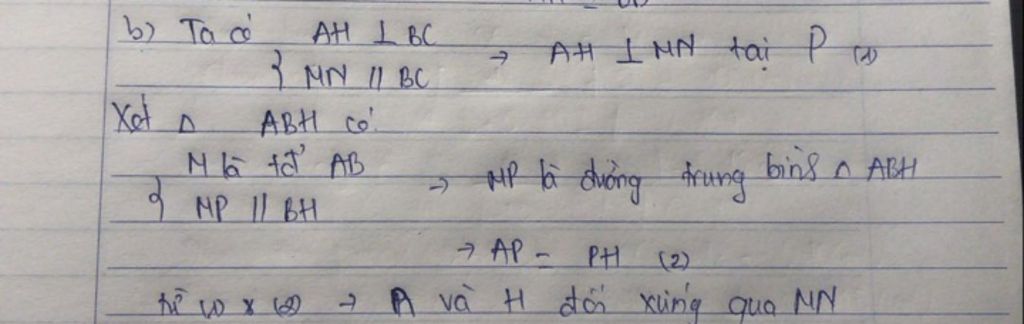 b) Ta có AH ⊥ BC
{ MN // BC → AH ⊥ MN tại P (1)
Xét Δ ABH có
M là tđ AB
{ MP // BH → MP là đường trung bình Δ ABH
→ AP = PH (2)
từ (1) & (2) → A và H đối xứng qua MN